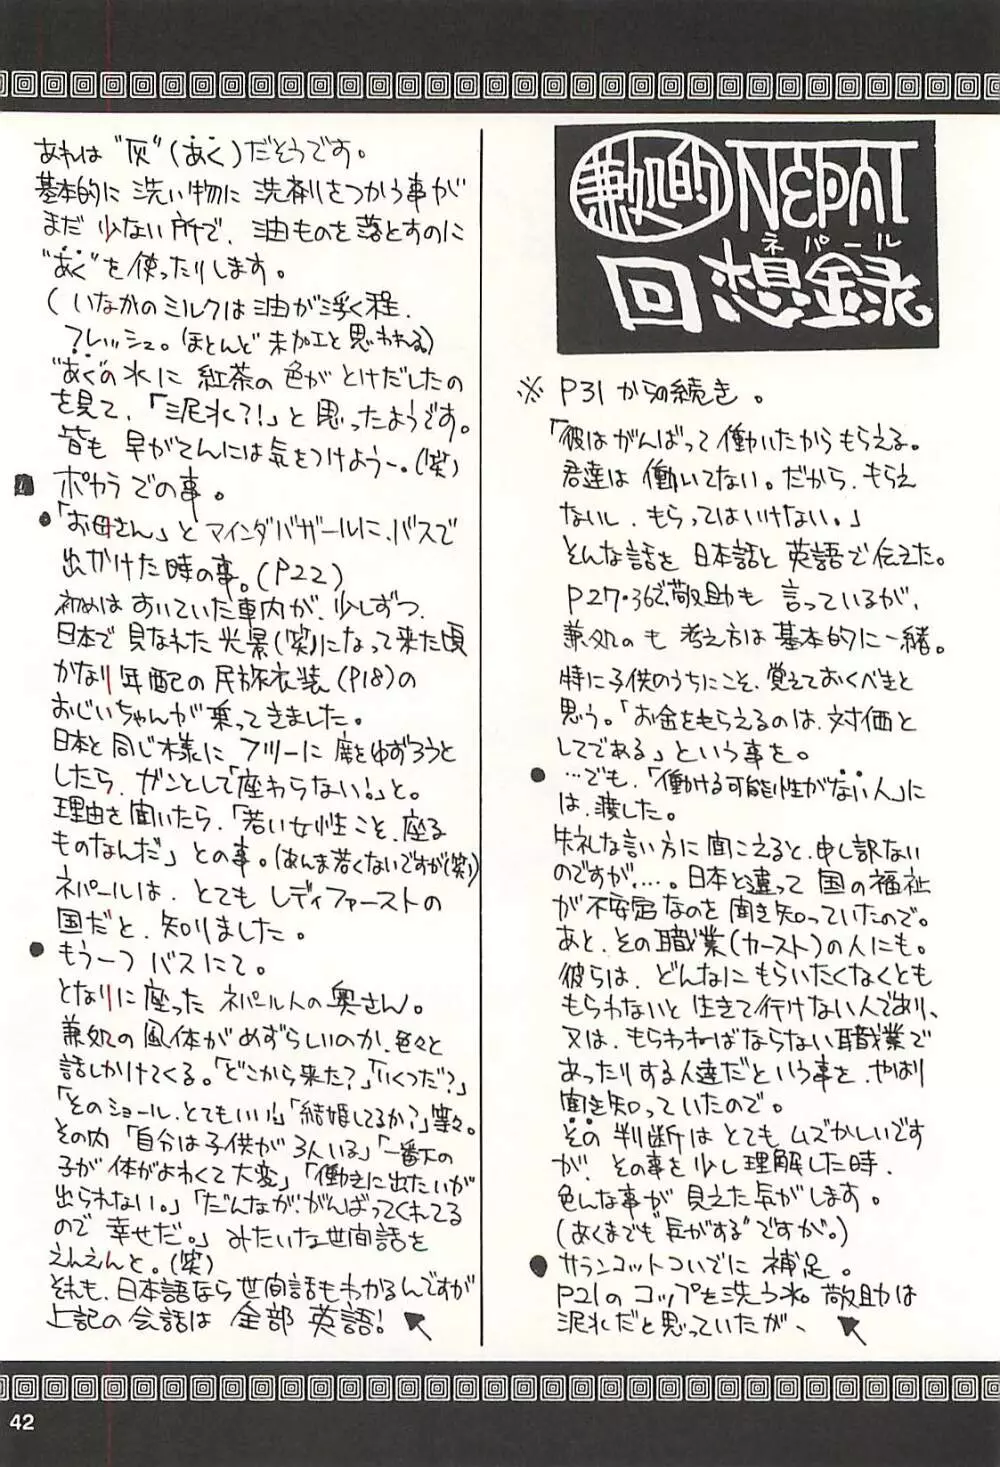 兼処的 NEPAL
ネパール
回想録
※ P31からの続き。
「彼はがんばって働いたからもらえる。
君達は働いてない。だから、もらえ
ないし、もらってはいけない。」
そんな話を日本語と英語で伝えた。
P27・36で敬助も言っているが、
兼処のも考え方は基本的に一緒。
特に子供のうちにこそ、覚えておくべきと
思う。「お金をもらえるのは、対価と
してである」という事を。
●…でも、「働ける可能性がない人」に
は、渡した。
失礼な言い方に聞こえると、申し訳ない
のですが、…。日本と違って国の福祉
が不安定なのを聞き知っていたので。
あと、その職業(カースト)の人にも。
彼らは、どんなにもらいたくなくとも
もらわないと生きて行けない人であり、
又は、もらわねばならない職業で
あったりする人達だという事を、やはり
聞き知っていたので。
その判断はとてもムズかしいです
が、その事を少し理解した時、
色んな事が見えた気がします。
(あくまでも"気がする"ですが。)
●サランコットついでに補足。
P21のコップを洗う水。敬助は
泥水だと思っていたが、
あれは"灰"(あく)だそうです。
基本的に洗い物に洗剤をつかう事が
まだ少ない所で、油ものを落とすのに
"あく"を使ったりします。
(いなかのミルクは油が浮く程、
フレッシュ。(ほとんど未加工と思われる)
"あく"の水に紅茶の色がとけだしたの
を見て、「泥水?!」と思ったようです。
皆も早がてんには気をつけよう〜。(笑)
■ポカラでの事。
●「お母さん」とマインダバザールに、バスで
出かけた時の事。(P22)
初めはすいていた車内が、少しずつ、
日本で見なれた光景(笑)になって来た頃
かなり年配の民族衣装(P18)の
おじいちゃんが乗ってきました。
日本と同じ様にフツーに席をゆずろうと
したら、ガンとして「座わらない!」と。
理由を聞いたら、「若い女性こそ、座る
ものなんだ」との事。(あんま若くないですが(笑))
ネパールは、とてもレディファーストの
国だと、知りました。
●もう一つバスにて。
となりに座ったネパール人の奥さん。
兼処の風体がめずらしいのか、色々と
話しかけてくる。「どこから来た?」「いくつだ?」
「そのショール、とてもいい!」「結婚してるか?」等々。
その内「自分は子供が3人いる」「一番下の
子が体がよわくて大変」「働きに出たいが
出られない。」「だんなが、がんばってくれてる
ので幸せだ。」みたいな世間話を
えんえんと。(笑)
それも、日本語なら世間話もわかるんですが
上記の会話は全部英語!
42